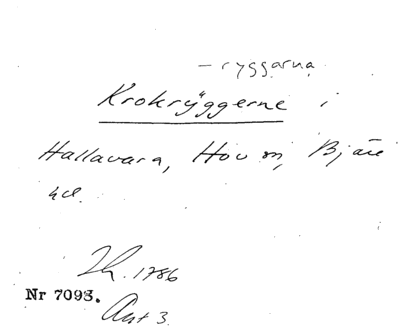 – ryggarna
Krokryggerne i
Hallavara, Hov sn, Bjäre
hd.
Lh. 1786
Nr 7093.
Akt 3.